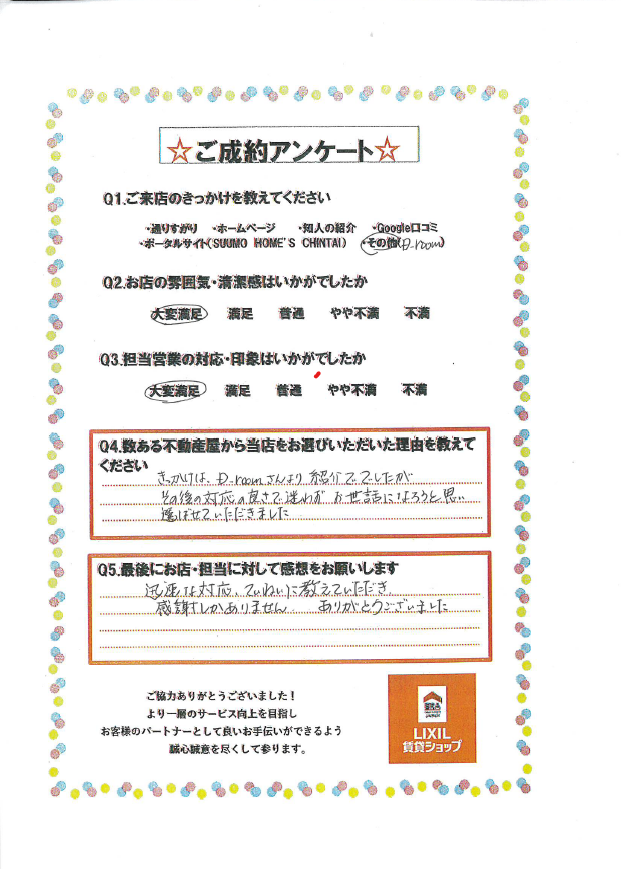 ☆ご成約アンケート☆
Q1.ご来店のきっかけを教えてください
・通りすがり ・ホームページ ・知人の紹介 ・Google口コミ
・ポータルサイト(SUUMO HOME'S CHINTAI) ・その他(D-room)
Q2.お店の雰囲気・清潔感はいかがでしたか
大変満足 満足 普通 やや不満 不満
Q3.担当営業の対応・印象はいかがでしたか
大変満足 満足 普通 やや不満 不満
Q4.数ある不動産屋から当店をお選びいただいた理由を教えて
ください
きっかけは、D-roomさんより紹介ででしたが
その後の対応の良さで迷わず お世話になろうと思い
選ばせていただきました
Q5.最後にお店・担当に対して感想をお願いします
迅速な対応、ていねいに教えていただき、
感謝しかありません ありがとうございました
ご協力ありがとうございました！
より一層のサービス向上を目指し
お客様のパートナーとして良いお手伝いができるよう
誠心誠意を尽くして参ります。
LIXIL
賃貸ショップ